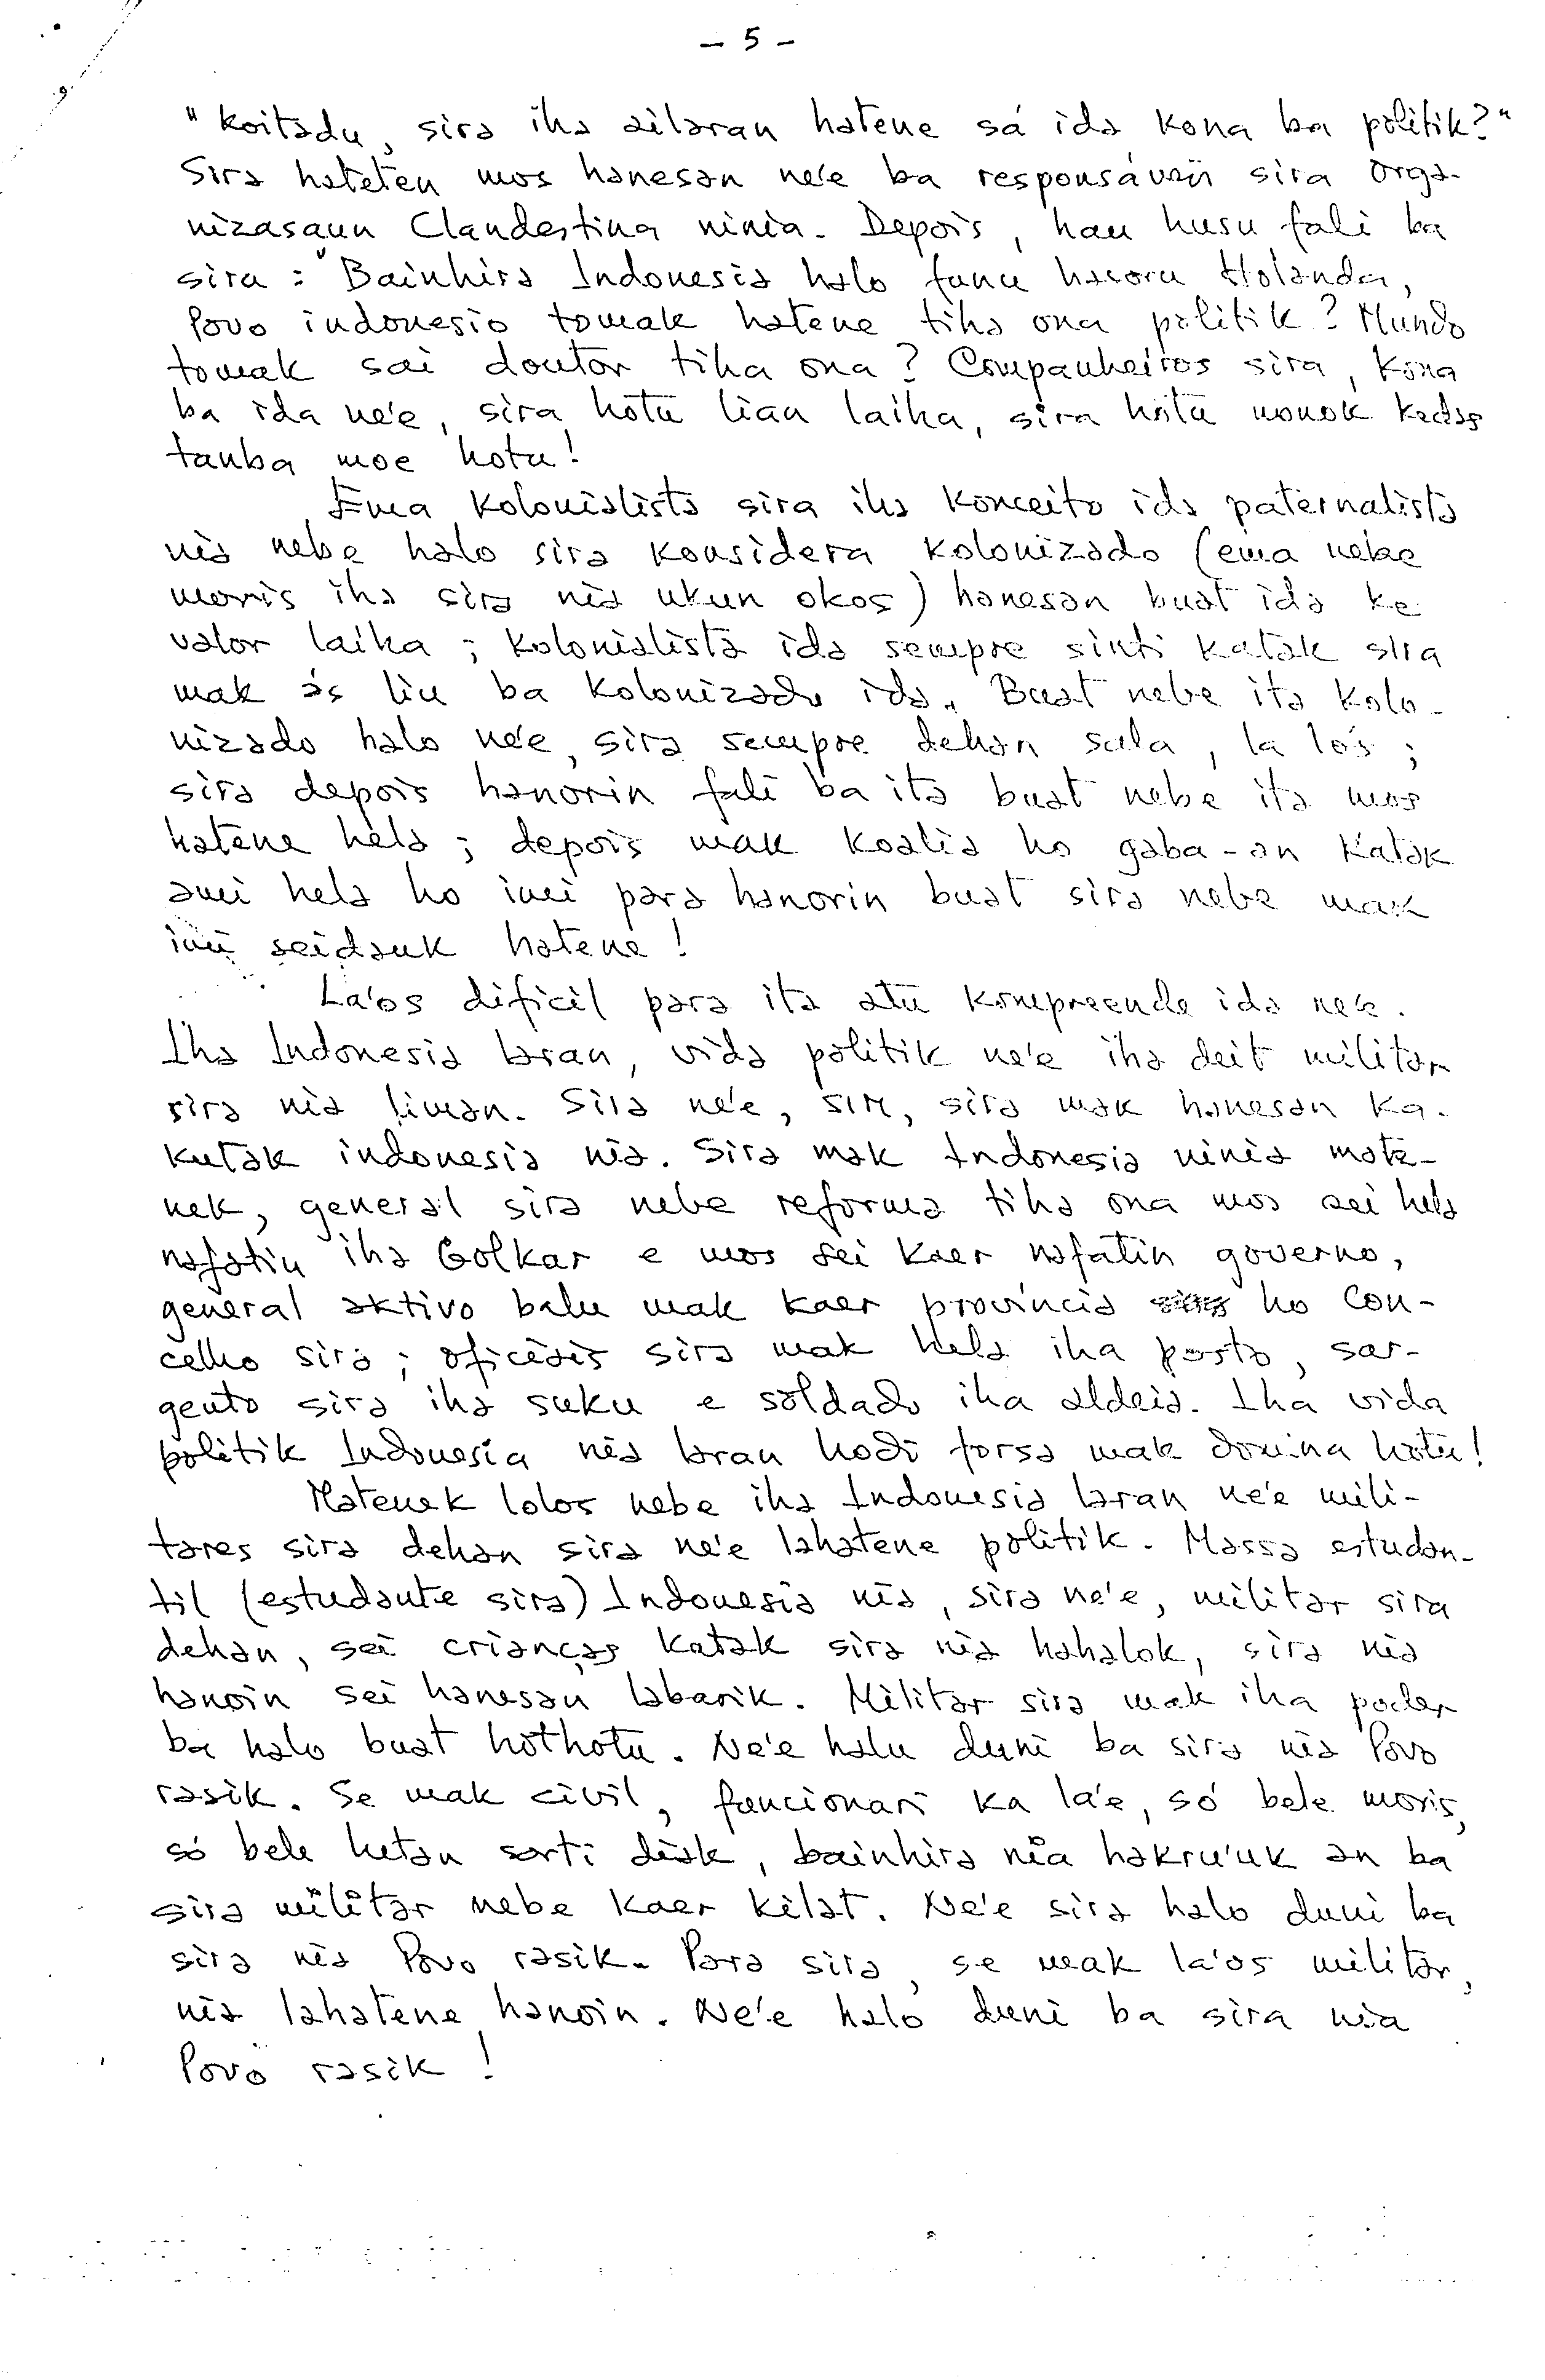 - 5 -
"Koitadu, sira iha ailaran hatene sá ida kona ba politik?"
Sira hateten mos hanesan ne'e ba responsávaii sira orga-
nizasaun Clandestina ninia. Depois, hau husu fali ba
sira: "Bainhira Indonesia halo funu hasoru Holanda,
Povo indonesio tomak hatene tiha ona politik? Mundo
tomak sai doutor tiha ona? Companheiros sira, kona
ba ida ne'e, sira hotu lian laiha, sira hotu nonok kedas
tanba moe hotu!
Ema kolonialista sira iha konceito ida paternalista
nia nebe halo sira konsidera kolonizado (ema nebe
moris iha sira nia ukun okos) hanesan buat ida ke
valor laiha; kolonialista ida sempre sinti katak sira
mak ás liu ba kolonizado ida. Buat nebe ita kolo-
nizado halo ne'e, sira sempre dehan sala, la lo's;
sira depois hanorin fali ba ita buat nebe ita mos
hatene hela; depois mak koalia ho gaba-an katak
ami hela ho imi para hanorin buat sira nebe mak
imi seidauk hatene!
La'os dificil para ita atu kompreende ida ne'e.
Iha Indonesia laran, vida politik ne'e iha deit militar
sira nia liman. Sira ne'e, sim, sira mak hanesan ka-
kutak indonesia nia. Sira mak Indonesia ninia mate-
nek, general sira nebe reforma tiha ona mos sei hela
nafatin iha Golkar e mos sei kaer nafatin governo,
general aktivo balu mak kaer provincia ho con-
celho sira; oficiais sira mak hela iha posto, sar-
gento sira iha suku e soldado iha aldeia. Iha vida
politik Indonesia nia laran hodi forsa mak domina hotu!
Matenek lolos nebe iha Indonesia laran ne'e mili-
tares sira dehan sira ne'e lahatene politik. Massa estudan-
til (estudante sira) Indonesia nia, sira ne'e, militar sira
dehan, sei crianças katak sira nia hahalok, sira nia
hanoin sei hanesan labarik. Militar sira mak iha poder
ba halo buat hothotu. Ne'e halu duni ba sira nia Povo
rasik. Se mak civil, funcionari ka la'e, só bele moris,
só bele hetan sorti diak, bainhira nia hakru'uk an ba
sira militar nebe kaer kilat. Ne'e sira halo duni ba
sira nia Povo rasik. Para sira, se mak la'os militar,
nia lahatene hanoin. Ne'e halo duni ba sira nia
Povo rasik!